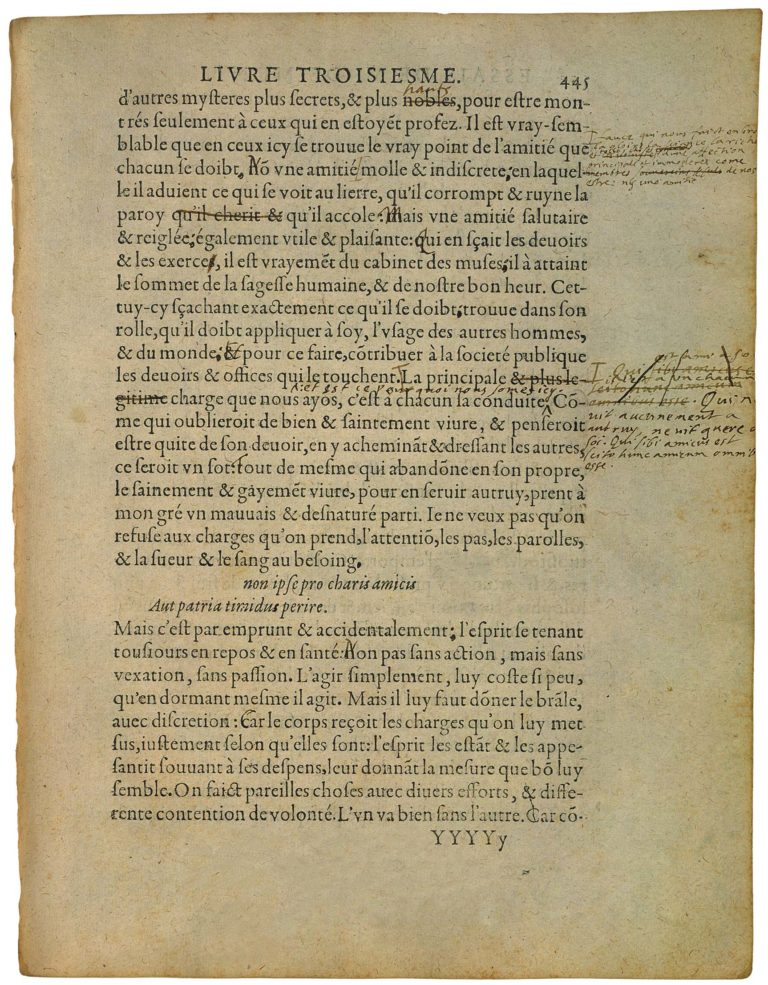 LIVRE TROISIESME. 445
d'autres mysteres plus secrets, & plus nobles, pour estre mon-
hauts
trés seulement à ceux qui en estoyẽt profez. Il est vray-sem-
blable que en ceux icy se trouue le vray point de l'amitié que
chacun se doibt. Nõ vne amitié molle & indiscrete, en laquel-
le il aduient ce qui se voit au lierre, qu'il corrompt & ruyne la
paroy qu'il cherit & qu'il accole: Mais vne amitié salutaire
& reiglée; également vtile & plaisante: qui en sçait les deuoirs
& les exerce, il est vrayemẽt du cabinet des muses; il à attaint
le sommet de la sagesse humaine, & de nostre bon heur. Cet-
tuy-cy sçachant exactement ce qu'il se doibt; trouue dans son
rolle, qu'il doibt appliquer à soy, l'vsage des autres hommes,
& du monde; & pour ce faire, cõtribuer à la societé publique
les deuoirs & offices qui le touchent. La principale & plus le-
gitime charge que nous ayõs, c'est à chacun sa conduite. Cõ-
& est ce pourquoi nous somes icy
me qui oublieroit de bien & saintement viure, & penseroit
estre quite de son deuoir, en y acheminãt & dressant les autres;
ce seroit vn sot: tout de mesme qui abandõne en son propre,
le sainement & gayemẽt viure, pour en seruir autruy, prent à
mon gré vn mauuais & desnaturé parti. Ie ne veux pas qu'on
refuse aux charges qu'on prend, l'attentiõ, les pas, les parolles,
& la sueur & le sang au besoing.
non ipse pro charis amicis
Aut patria timidus perire.
Mais c'est par emprunt & accidentalement; l'esprit se tenant
tousiours en repos & en santé: Non pas sans action, mais sans
vexation, sans passion. L'agir simplement, luy coste si peu,
qu'en dormant mesme il agit. Mais il luy faut dõner le brãle,
auec discretion: Car le corps reçoit les charges qu'on luy met
sus, iustement selon qu'elles sont: l'esprit les estãt & les appe-
santit souuant à ses despens, leur donnãt la mesure que bõ luy
semble. On faict pareilles choses auec diuers efforts, & diffe-
rente contention de volonté. L'vn va bien sans l'autre. Car cõ-
YYYYy
qui nous faict
affection
principalle et immoderee come
membres de nos
estre: ny une amitie
Qui n
vit aucunement a
autruy ne vit guere a
soi. Qui sibi amicus est
scito hunc amicum omnib
esse.